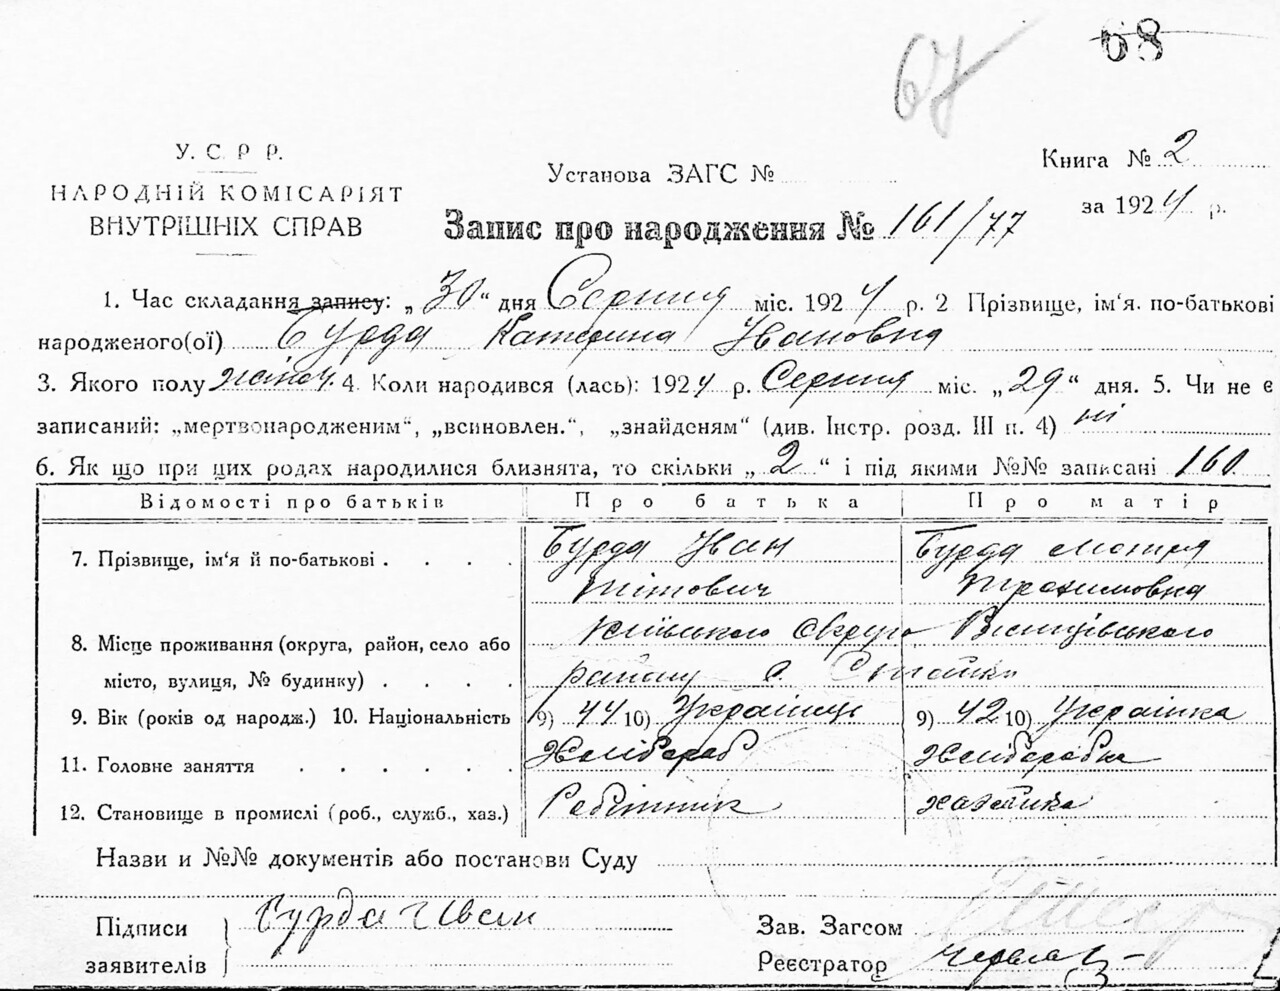 67
68
У. С. Р Р.
НАРОДНІЙ КОМІСАРІЯТ
ВНУТРІШНІХ СПРАВ
Установа ЗАГС №
Книга № 2
за 1924 р.
Запис про народження № 161/77
1. Час складання запису: „30“ дня Серпня міс. 1924 р. 2 Прізвище, ім‘я. по-батькові
народженого(ої) Бурда Катерина Ивановна
3. Якого полу жіноч. 4. Коли народився (лась): 1924 р. Серпня міс. „29“ дня. 5. Чи не є
записаний: „мертвонародженим“, „всиновлен.“, „знайденям“ (див. Інстр. розд. III п. 4) ні
6. Як що при цих родах народилися близнята, то скільки „2“ і під якими №№ записані 160
Відомості про батьків Про батька Про матір
7. Прізвище, ім‘я й по-батькові . . . . Бурда Иван Бурда Мотря
Тітович Трохимовна
8. Місце проживання (округа, район, село або Київського Округа
місто, вулиця, № будинку) . . . . району с.
9. Вік (років од народж.) 10. Національність 9) 44 10) Українець 9) 42 10) Українка
11. Головне заняття . . . . . . Хлібороб Хліборобка
12. Становище в промислі (роб., служб., хаз.) Робітник хазяйка
Назви и №№ документів або постанови Суду
Підписи
заявителів
Бурда Иван
Зав. Загсом
Реєстратор